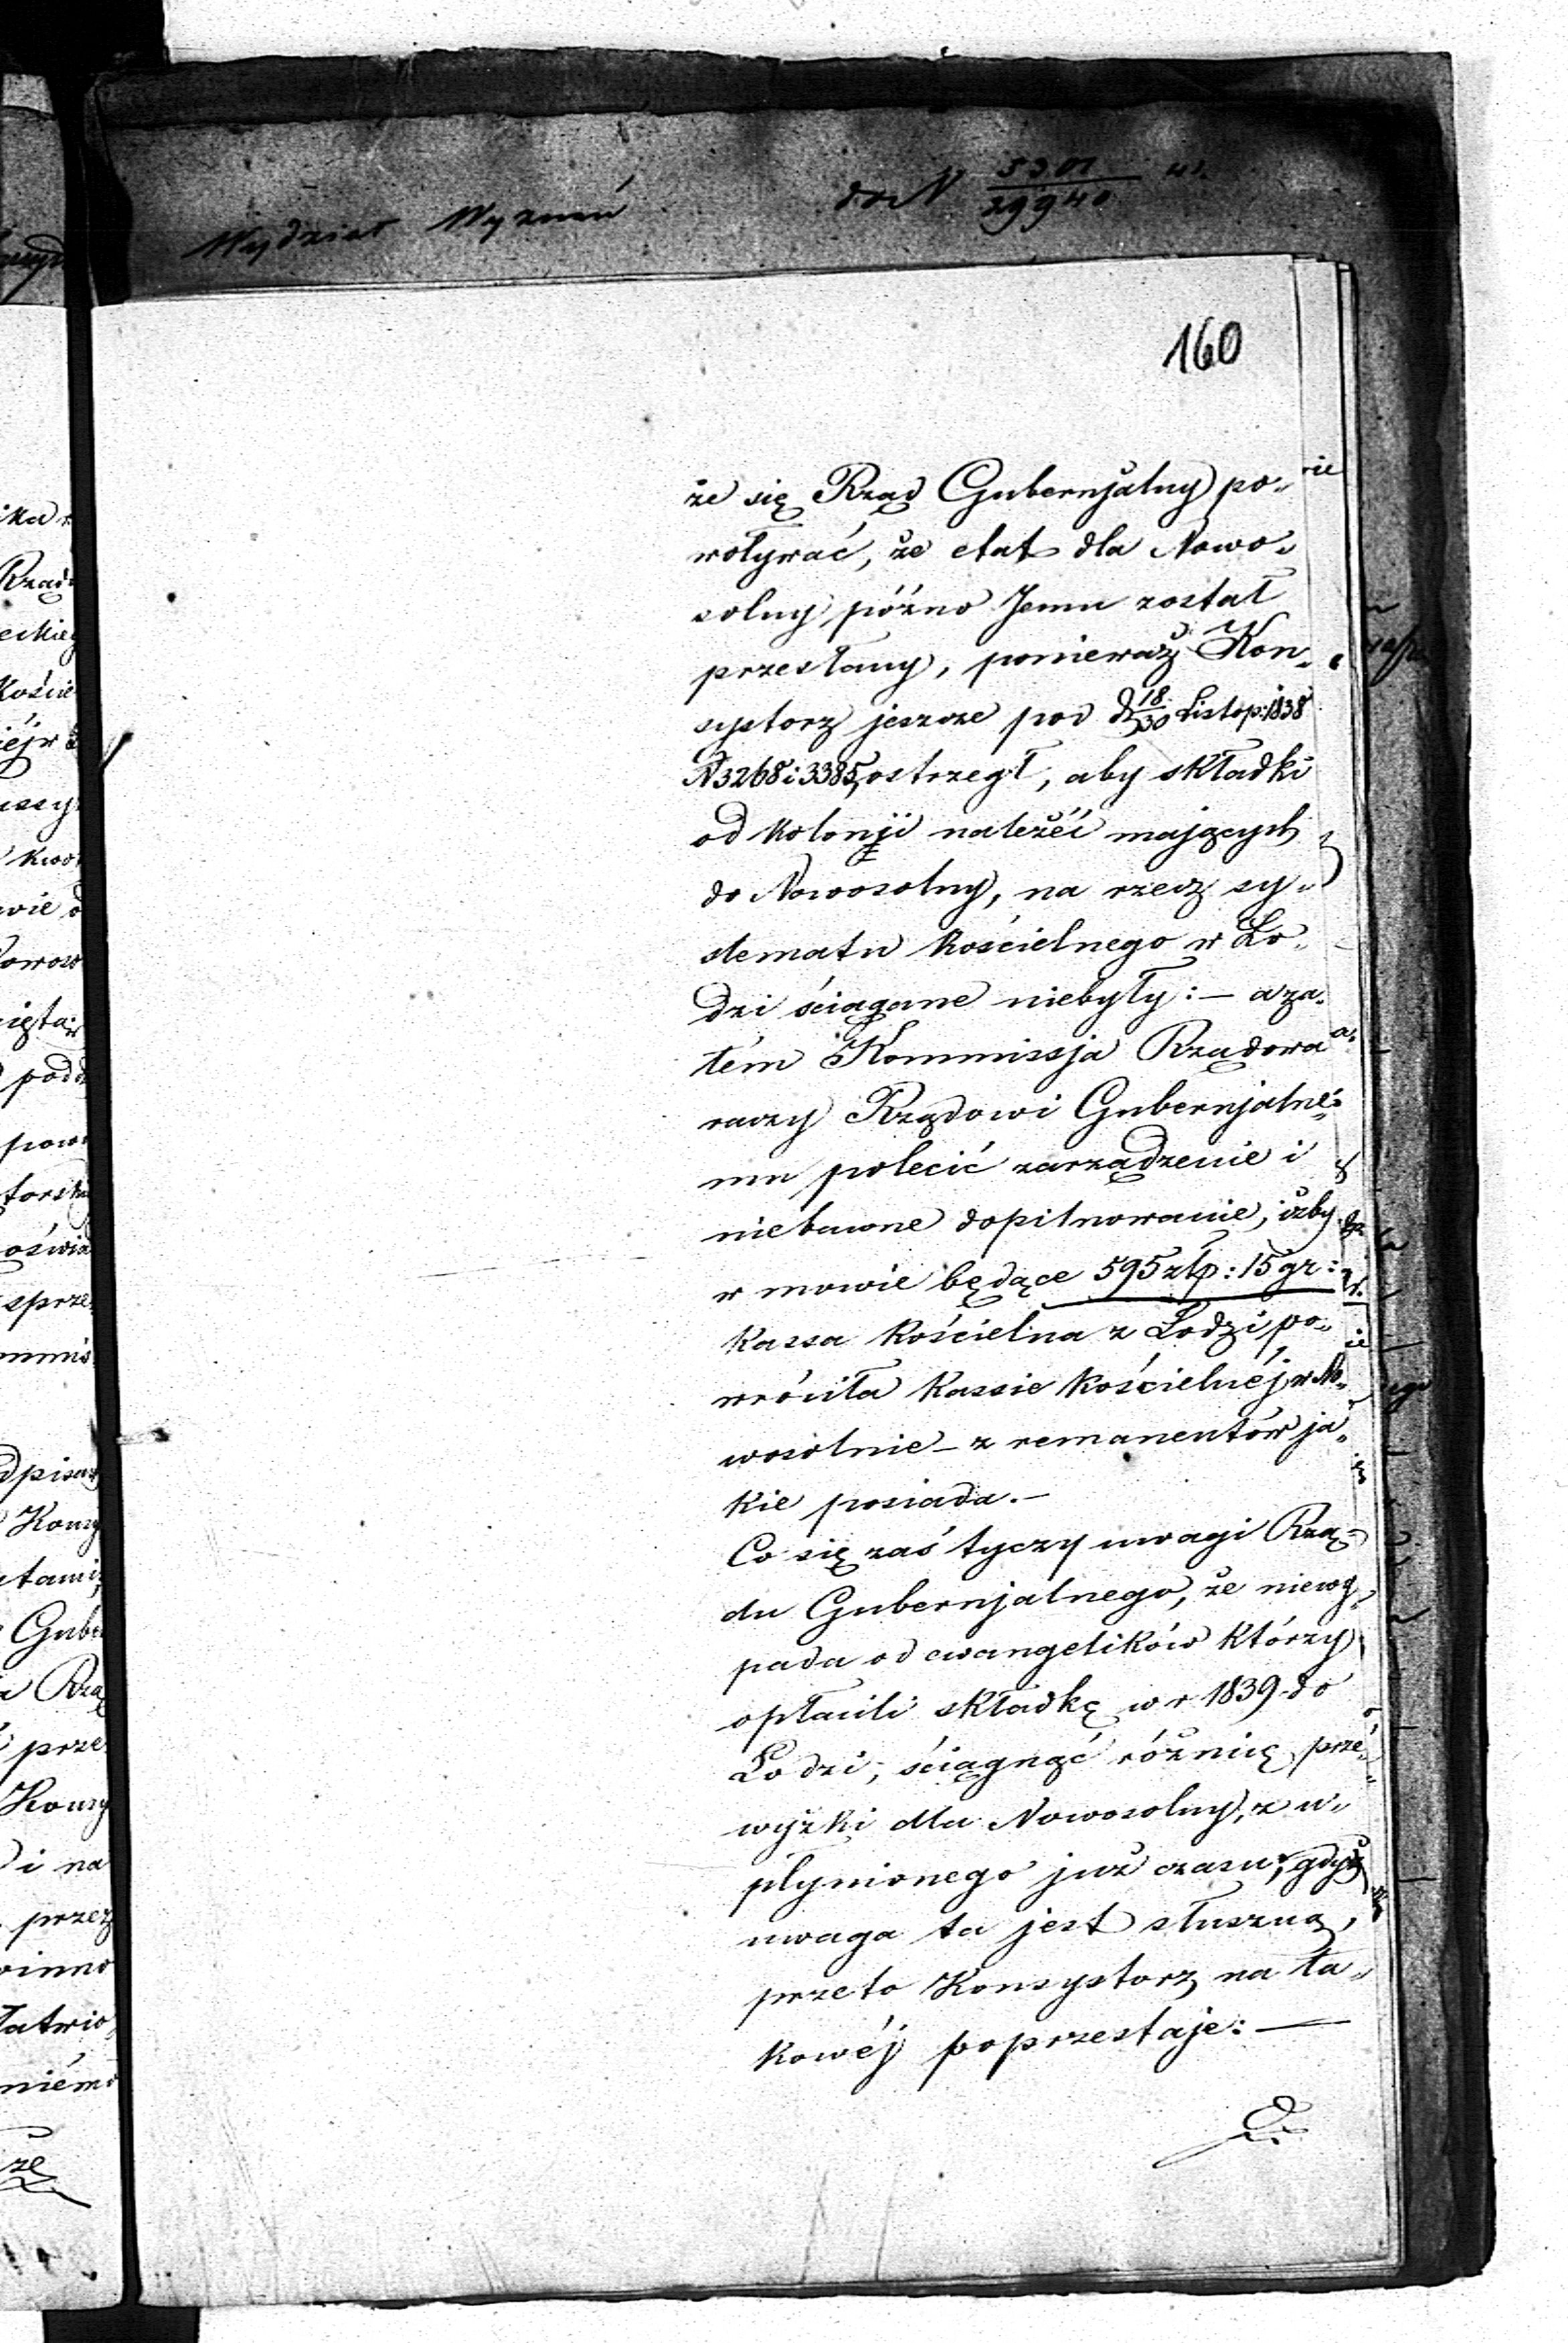 Wydział Wyznań do N 5301/29940 41.
160
że się Rząd Gubernjalny po„
woływać, że etat dla Nowo„
solny późno Jemu został
przesłany, ponieważ Kon„
systorz jeszcze pod d 18/30 Listop: 1838
N 3268 i 3385, ostrzegł, aby składki
od kolonji należéć mających
do Nowosolny, na rzecz sy„
stematu kościelnego w Ło„
dzi ściągane niebyły: — aza„
tém Kommissja Rządowa
raczy Rządowi Gubernjalne„
mu polecić zarządzenie i
niebawne dopilnowanie, iżby
w mowie będące 595 złp: 15 gr:
Kassa Kościelna z Łodzi po„
wróciła Kassie Kościelnéj w No„
wosolnie – z remanentów ja„
kie posiada. —
Co się zaś tyczy uwagi Rzą„
du Gubernjalnego, że niewy„
pada od ewangelików którzy
opłacili składkę w r 1839 do
Łodzi, ściągnąć różnicę prze„
wyżki dla Nowosolny, z u„
płynionego już czasu, gdyż
uwaga ta jest słuszną,
przeto Konsystorz na ta„
kowéj poprzestaje: —